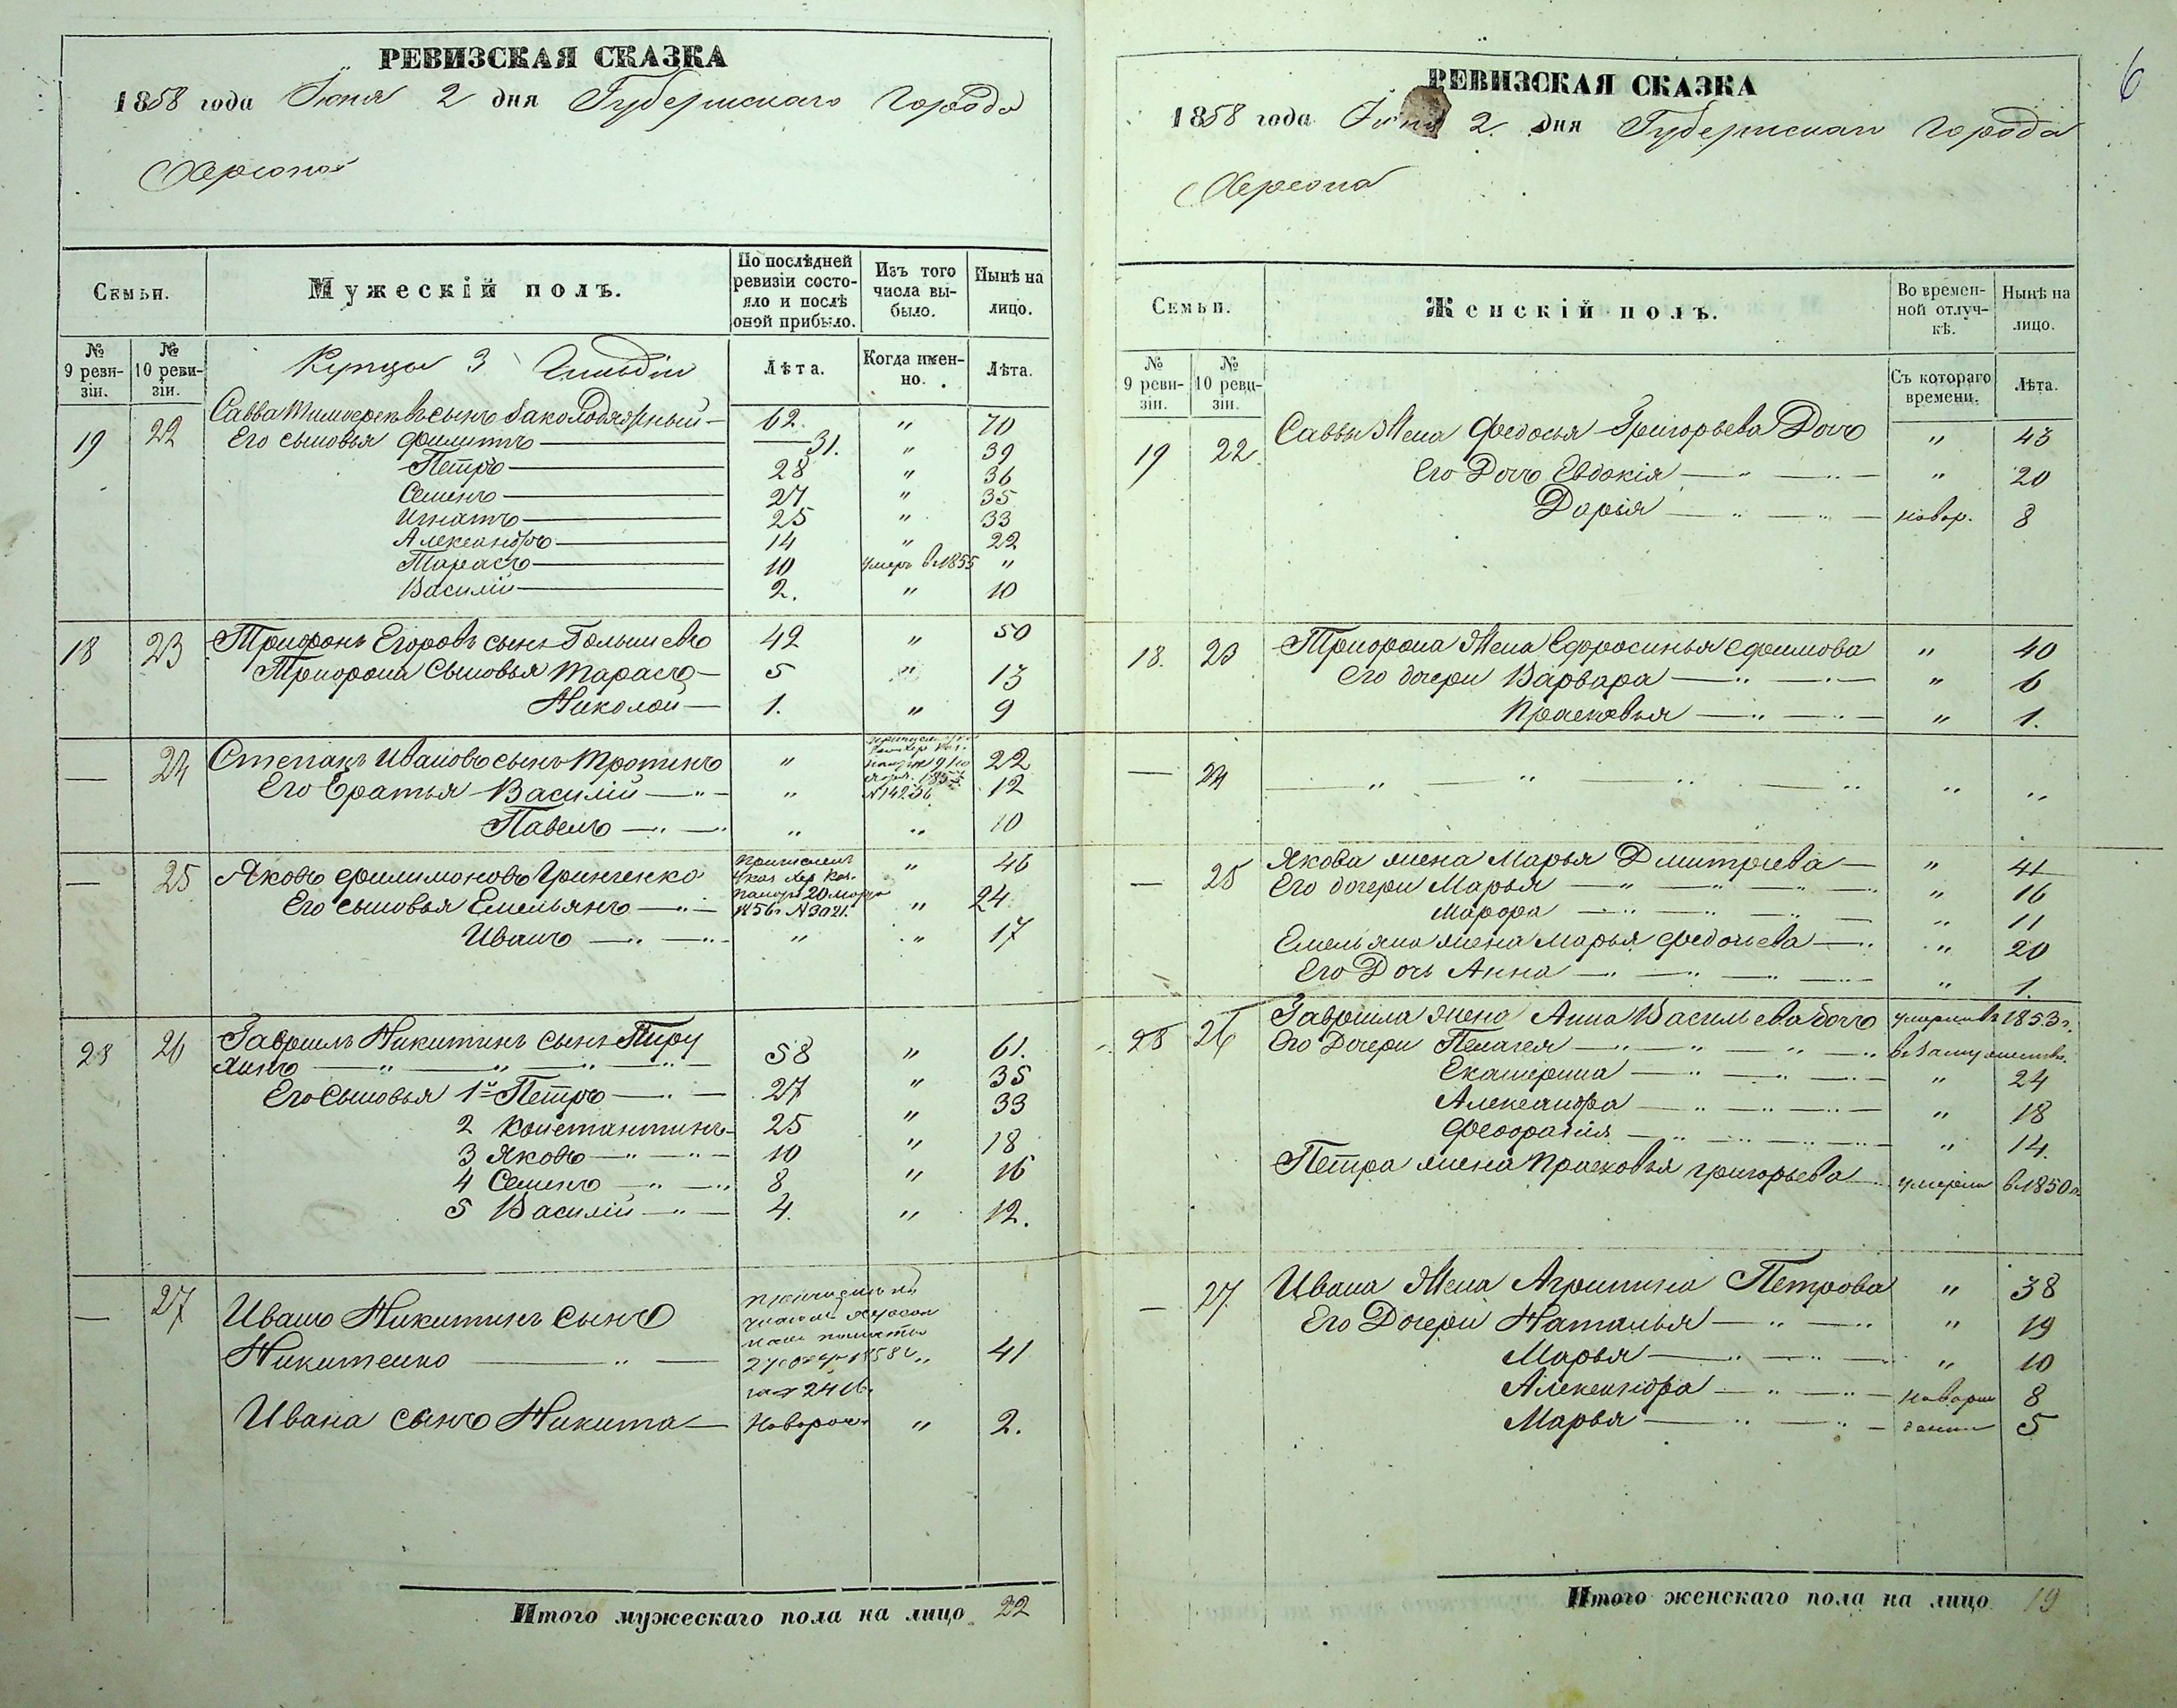 РЕВИЗСКАЯ СКАЗКА
1858 года Іюня 2 дня Губернскаго Города
Херсона
Семьи.
Мужескій полъ.
По послѣдней ревизіи состояло и послѣ оной прибыло.
Изъ того числа выбыло.
Нынѣ на лицо.
№ 9 ревизіи.
№ 10 ревизіи.
Купцы 3 Гильдіи
Лѣта.
Когда именно.
Лѣта.
19 22 Савва сынъ 62. " 70
Его сыновья Филипъ 31. " 39
Петръ 28 " 36
Семенъ 27 " 35
Игнатъ 25 " 33
Александръ 14 " 22
Тарасъ 10 умеръ в 1855 "
Василій 2. " 10
18 23 Трифонъ Егоровъ сынъ Голышевъ 42 " 50
Трифона Сыновья Тарасъ 5 " 13
Николай 1. " 9
— 24 Степанъ Ивановъ сынъ Тротинъ " 22
Его Братья Василій " №14236 12
Павелъ " " 10
— 25 Яковъ Филимоновъ Гринченко " 46
Его сыновья Емельянъ 1856 №3021. " 24
Иванъ " " 17
28 26 Гавріилъ Никитинъ сынъ Пиру
жинъ 58 " 61.
Его Сыновья 1й Петръ 27 " 35
2 Константинъ 25 " 33
3 Яковъ 10 " 18
4 Семенъ 8 " 16
5 Василій 4. " 12.
— 27 Иванъ Никитинъ сынъ
Никитенко " 41
Ивана сынъ Никита Новорож. " 2.
Итого мужескаго пола на лицо 22
6
РЕВИЗСКАЯ СКАЗКА
1858 года Іюня 2. дня Губернскаго Города
Херсона
Семьи.
Женскій полъ.
Во временной отлучкѣ.
Нынѣ на лицо.
№ 9 ревизіи.
№ 10 ревизіи.
Съ котораго времени.
Лѣта.
19 22. Саввы Жена Федосья Григорьева Дочь " 43
Его Дочь Евдокія " 20
Дарія новор. 8
18. 23 Трифона Жена Ефросинья Ефимова " 40
Его дочери Варвара " 6
Прасковья " 1.
— 24 " " " "
— 25 Якова жена Марья Дмитріева " 41
Его дочери Марья " 16
Марфа " 11
Емельяна жена Марья Федотьева " 20
Его Дочь Анна " 1.
28 26 Гавріила жена Анна Васильева дочь умерла в 1853 г.
Его Дочери Пелагея в замужестве.
Екатерина " 24
Александра " 18
" 14.
Петра жена Прасковья Григорьева умерла в 1850 г.
— 27. Ивана Жена Агрипина Петрова " 38
Его Дочери Наталья " 19
Марья " 10
Александра новорож 8
Марья денныя 5
Итого женскаго пола на лицо 19